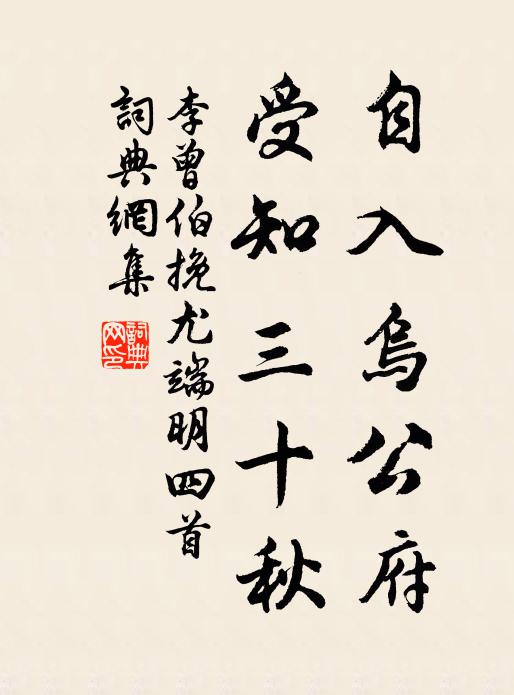 自入烏公府
受知三十秋
李曾伯挽尤端明四首
詞典網集
詞典網印